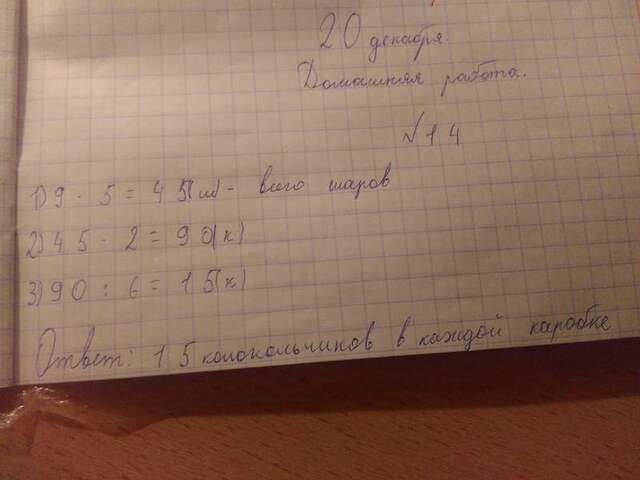 20 декабря.
Домашняя работа.
№14
1) 9 · 5 = 45(ш) - всего шаров
2) 45 · 2 = 90(к)
3) 90 : 6 = 15(к)
Ответ: 15 колокольчинов в каждой каробке